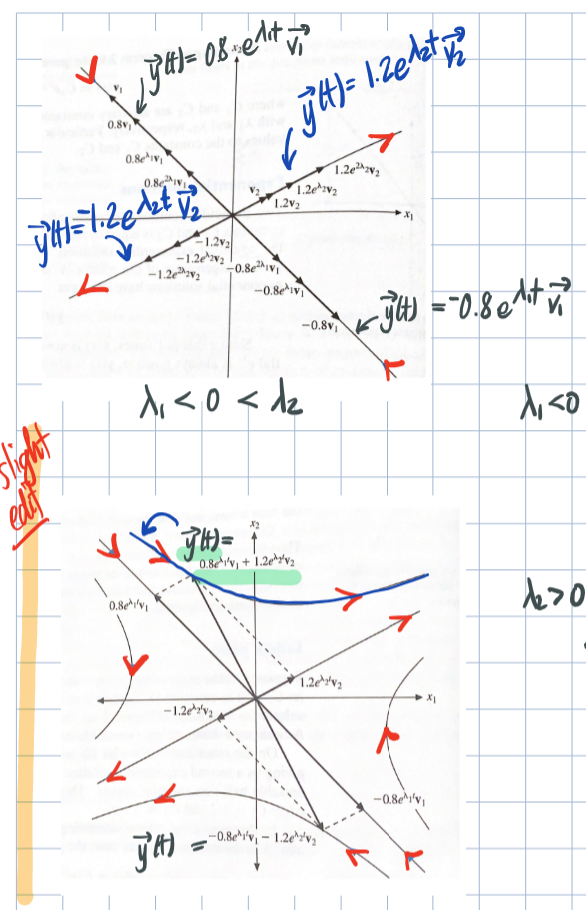 y⃗(t) = 0.8 e^{λ₁t} v⃗₁
x₂
y⃗(t) = 1.2e^{λ₂t} v⃗₂
v₁
0.8v₁
0.8e^{λ₁}v₁
0.8e^{2λ₁}v₁
1.2e^{2λ₂}v₂
v₂
1.2e^{λ₂}v₂
1.2v₂
x₁
y⃗(t) = -1.2e^{λ₂t} v⃗₂
-1.2v₂
-1.2e^{λ₂}v₂
-1.2e^{2λ₂}v₂
-0.8e^{2λ₁}v₁
-0.8e^{λ₁}v₁
-0.8v₁
y⃗(t) = -0.8 e^{λ₁t} v⃗₁
λ₁ < 0 < λ₂
λ₁<0
slight
edit
x₂
y⃗(t) =
0.8e^{λ₁t}v₁ + 1.2e^{λ₂t}v₂
0.8e^{λ₁t}v₁
λ₂>0
1.2e^{λ₂t}v₂
-1.2e^{λ₂t}v₂
x₁
-0.8e^{λ₁t}v₁
y⃗(t) = -0.8e^{λ₁t}v₁ - 1.2e^{λ₂t}v₂